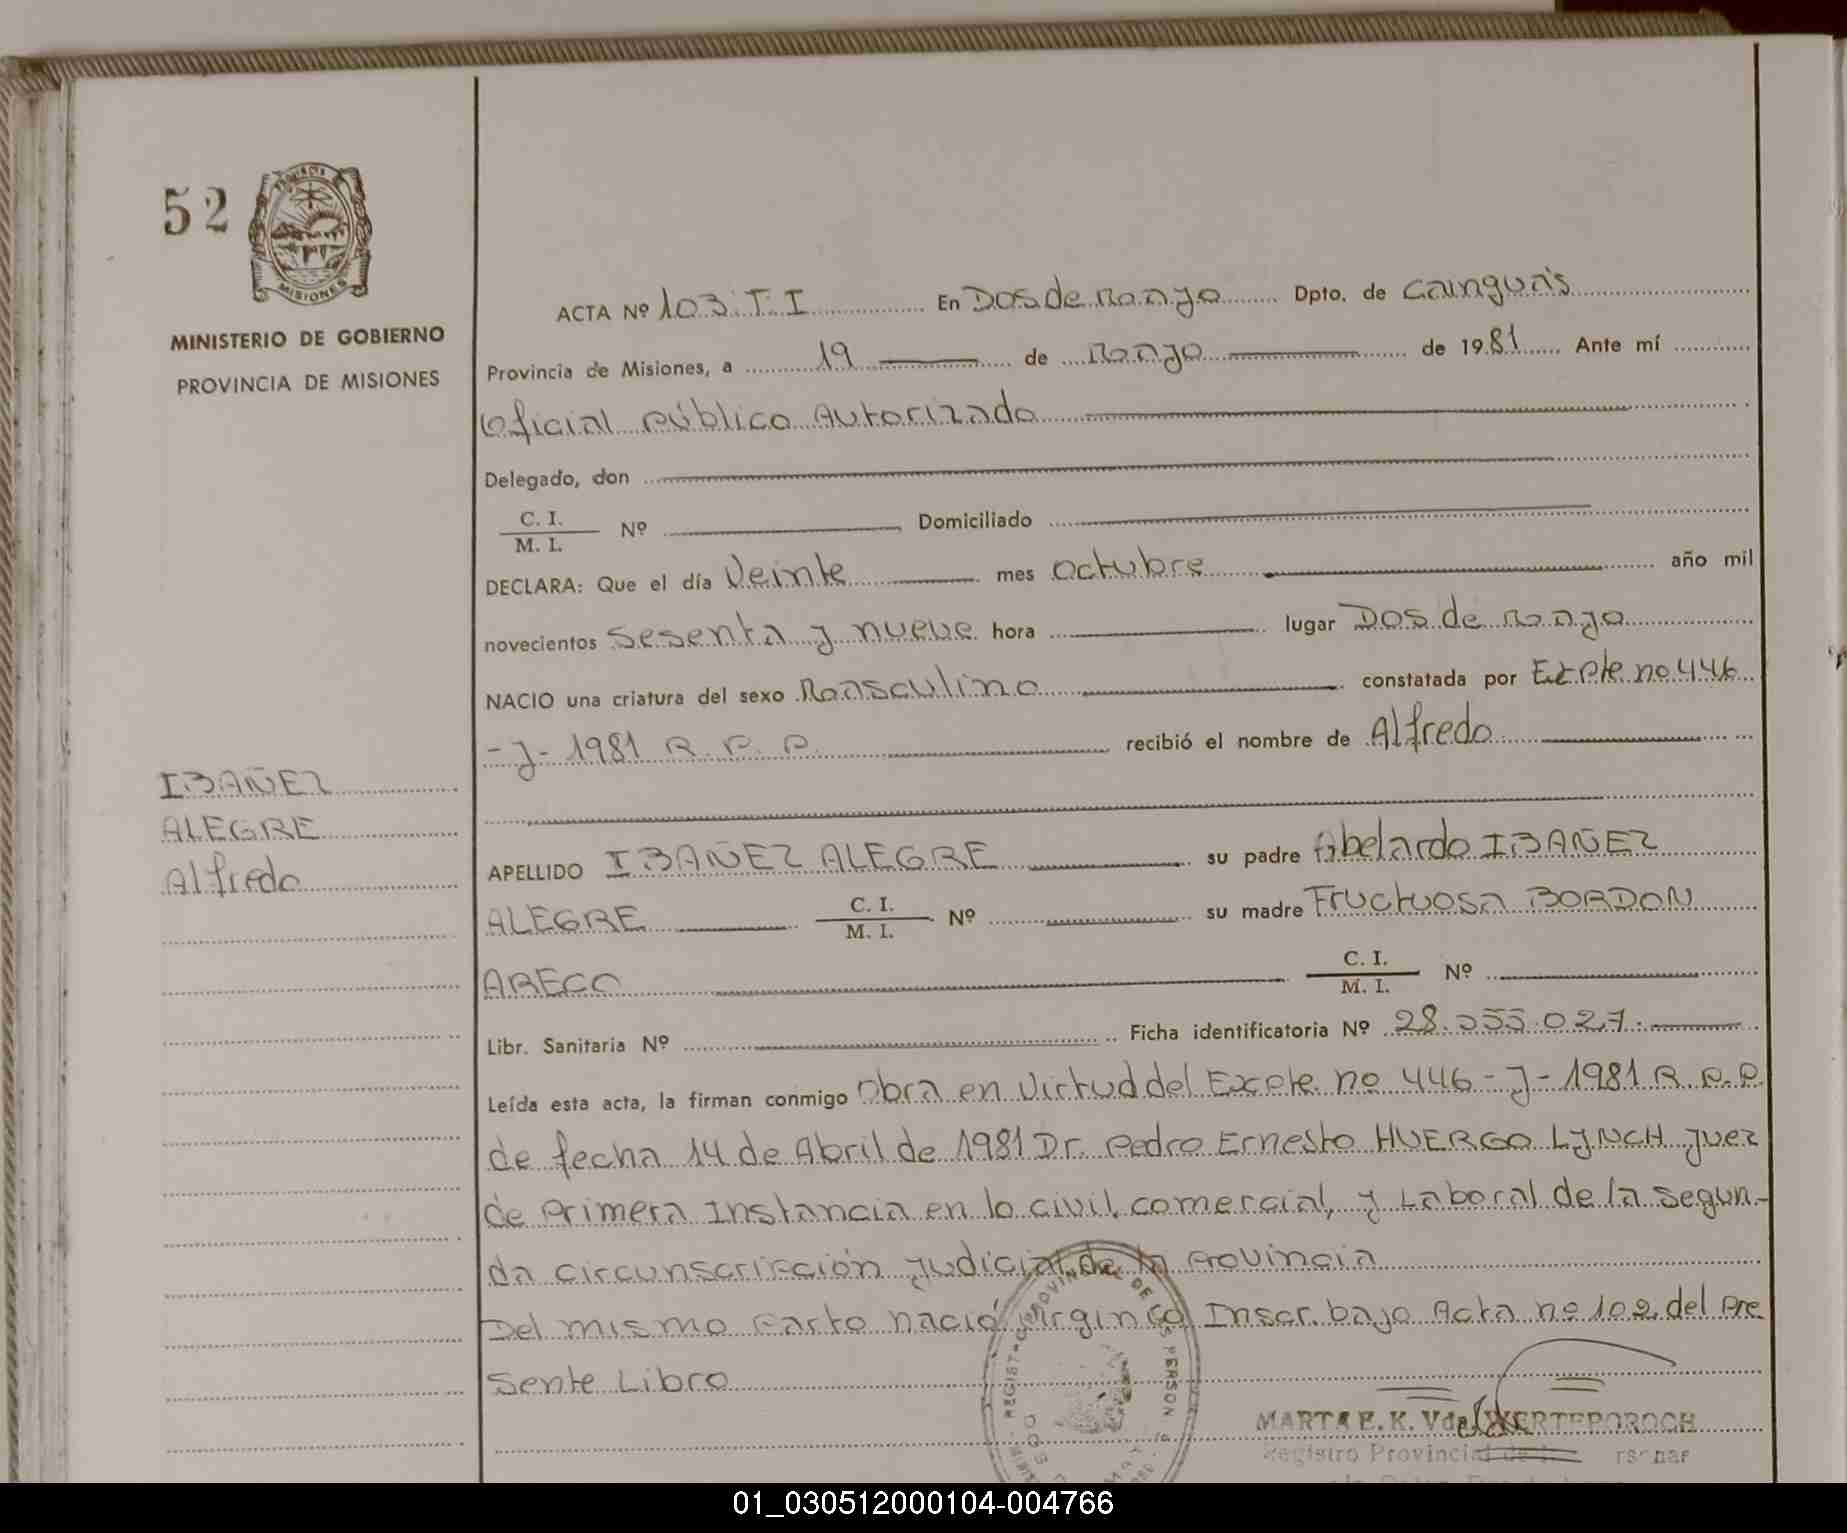 52
PROVINCIA
MISIONES
MINISTERIO DE GOBIERNO
PROVINCIA DE MISIONES
ACTA Nº 103 T. I En Dos de Mayo Dpto. de Cainguás
Provincia de Misiones, a 19 de Mayo de 1981 Ante mí
Oficial Público Autorizado
Delegado, don
C. I.
M. I. Nº Domiciliado
DECLARA: Que el día Veinte mes octubre año mil
novecientos sesenta y nueve hora lugar Dos de Mayo
NACIO una criatura del sexo Masculino constatada por Expte. no 446
-J- 1981 R. P. P. recibió el nombre de Alfredo
IBAÑEZ
ALEGRE
Alfredo
APELLIDO IBAÑEZ ALEGRE su padre Abelardo IBAÑEZ
ALEGRE C. I.
M. I. Nº su madre Fructuosa BORDON
ARECO C. I.
M. I. Nº
Libr. Sanitaria Nº Ficha identificatoria Nº 28.055.027.
Leída esta acta, la firman conmigo Obra en Virtud del Expte. no 446-J-1981 R. P. P.
de fecha 14 de Abril de 1981 Dr. Pedro Ernesto HUERGO LYNCH Juez
de Primera Instancia en lo civil, comercial, y Laboral de la segun-
da circunscripción Judicial de la Provincia
Del mismo Parto nació Inscr. bajo Acta no 102 del Pre
sente Libro
MARTA E. K. Vda. WERTEPOROCH
Registro Provincial de
01_030512000104-004766